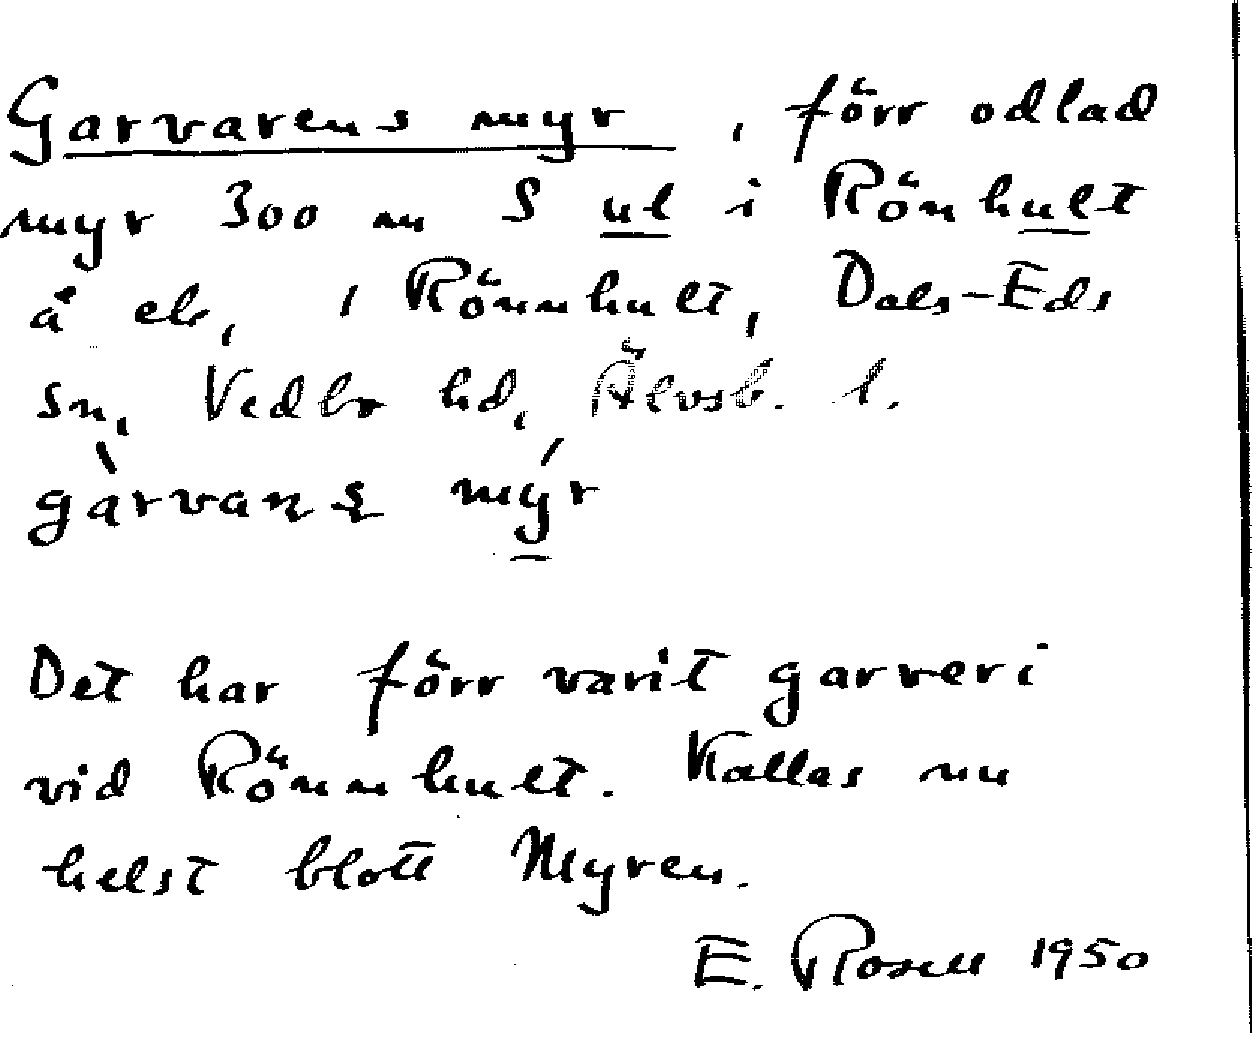 Garvarens myr, förr odlad
myr 300 m S ul i Rönhult
å ek, i Rönnhult, Dals-Eds
sn, Vedbo hd, Älvsb. l.
gàrvans mýr
Det har förr varit garveri
vid Rönnhult. Kallas nu
helst blott Myren.
E. Rosell 1950